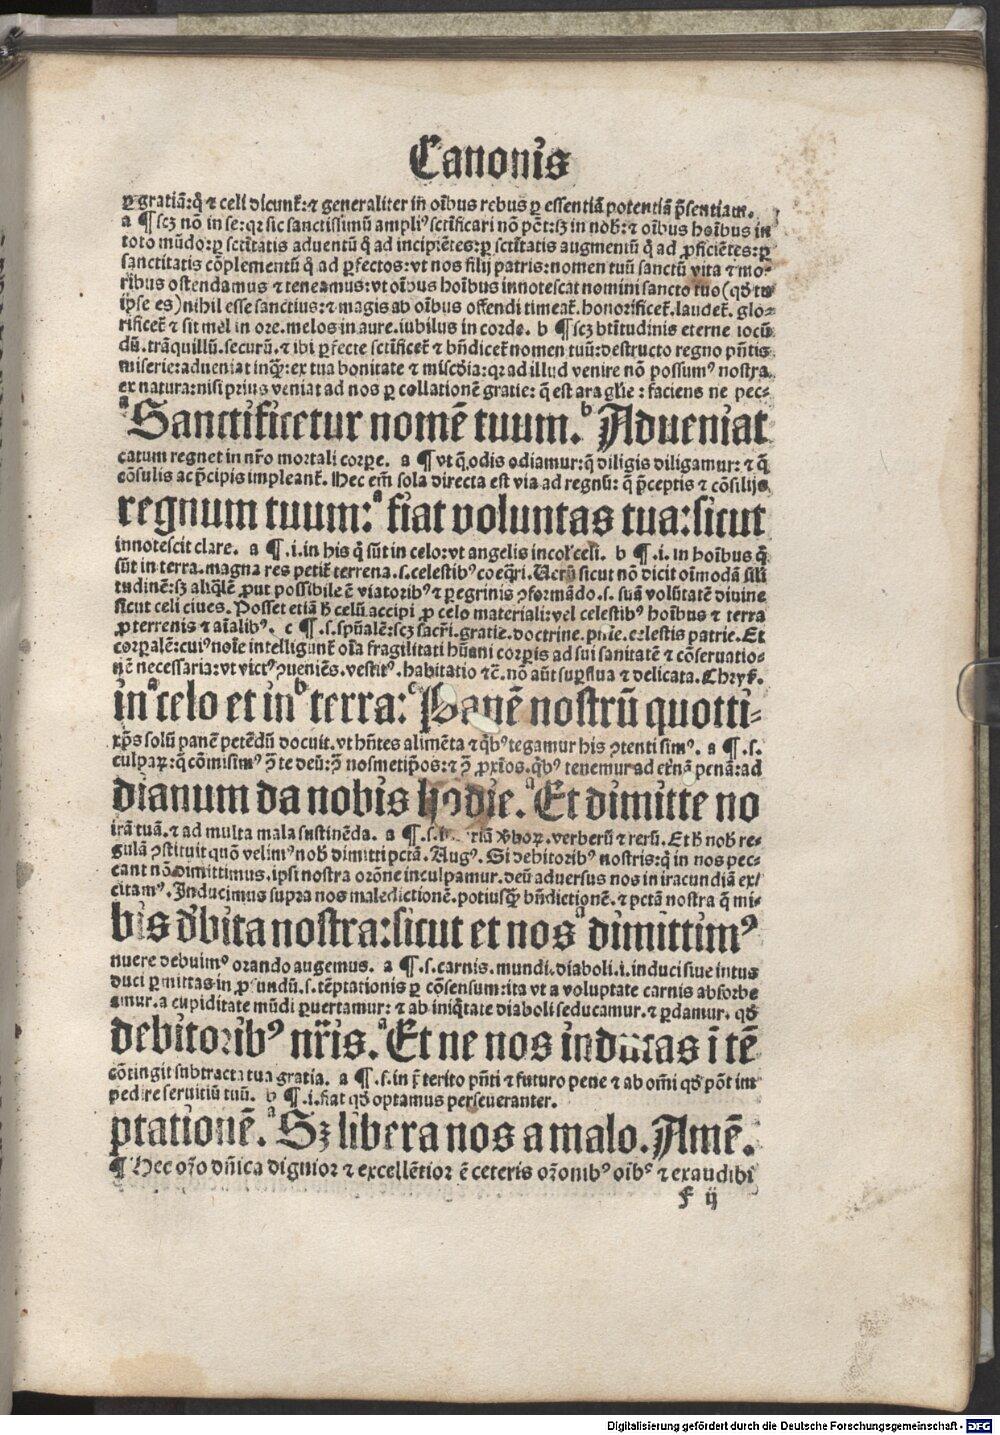 Canonis
ꝑ gratiã: q̃ ⁊ celi dicunt̃: ⁊ generaliter in oĩbus rebus ꝑ essentiã potentiã p̃sentiam.
a ¶ scꝫ nõ in se: qꝛ sic sanctissimũ ampliꝰ sctĩficari nõ põt: sꝫ in nob̃: ⁊ oĩbus hoĩbus in
toto mũdo: ꝑ sctĩtatis aduentũ q̃ ad incipiẽtes: ꝑ sctĩtatis augmentũ q̃ ad ꝓficiẽtes: ꝑ
sanctitatis cõplementũ q̃ ad ꝑfectos: vt nos filij patris: nomen tuũ sanctũ vita ⁊ mo⸗
ribus ostendamus ⁊ teneamus: vt oĩbus hoĩbus innotescat nomini sancto tuo (qđ tu
ip̃se es) nihil esse sanctius: ⁊ magis ab oĩbus offendi timeat̃. honorificet̃. laudet̃. glo⸗
rificet̃ ⁊ sit mel in ore. melos in aure. iubilus in corde. b ¶ scꝫ btĩtudinis eterne iocũ
dũ. trãquillũ. securũ. ⁊ ibi ꝑfecte sctĩficet̃ ⁊ bñdicet̃ nomen tuũ: destructo regno pñtis
miserie: adueniat inq̃ꝫ: ex tua bonitate ⁊ miscđia: qꝛ ad illud venire nõ possumꝰ nostra
ex natura: nisi prius veniat ad nos ꝑ collationẽ gratie: q̃ est ara gl̃ie: faciens ne pec⸗
a Sanctificetur nomẽ tuum. b Adueniat
catum regnet in nr̃o mortali corpe. a ¶ vt q̃ odis odiamur: q̃ diligis diligamur: ⁊ q̃
cõsulis ac p̃cipis impleant̃. Hec em̃ sola directa est via ad regnũ: q̃ p̃ceptis ⁊ cõsilijs
regnum tuum: a fiat voluntas tua: sicut
innotescit clare. a ¶ .i. in his q̃ sũt in celo: vt angelis incol̃ celi. b ¶ .i. in hoĩbus q̃
sũt in terra. magna res petit̃ terrena .s. celestibꝰ coeq̃ri. Uerũ sicut nõ dicit oĩmodã sili
tudinẽ: sꝫ aliq̃lẽ ꝓut possibile ẽ viatoribꝰ ⁊ ꝑegrinis ꝯformãdo .s. suã volũtatẽ diuine
sicut celi ciues. Posset etiã h̃ celũ accipi ꝓ celo materiali: vel celestibꝰ hoĩbus ⁊ terra
ꝓ terrenis ⁊ aĩalibꝰ. c ¶ .s. spũalẽ: scꝫ sacr̃i. gratie. doctrine. celestis patrie. Et
corpalẽ: cuiꝰ noĩe intelligunt̃ oĩa fragilitati hũani corpis ad sui sanitatẽ ⁊ cõseruatio⸗
nẽ necessaria: vt victꝰ ꝯueniẽs. vestitꝰ. habitatio ⁊c̃. nõ aũt suꝑflua ⁊ delicata. Chrys.
in a celo et in b terra: c Panẽ nostrũ quotti⸗
xp̃s solũ panẽ petẽdũ docuit. vt hñtes alimẽta ⁊ q̃bꝰ tegamur his ꝯtenti simꝰ. a ¶ .s.
culpaꝝ: q̃ cõmisimꝰ ꝯ̃ te deũ: ꝯ̃ nosmetip̃os: ⁊ ꝯ̃ ꝓxĩos. q̃bꝰ tenemur ad etẽnã penã: ad
dianum da nobis hodie. a Et dimitte no
irã tuã. ⁊ ad multa mala sustinẽda. a ¶ .s. verboꝝ. verberũ ⁊ rerũ. Et h̃ nob̃ re⸗
gulã ꝯstituit quõ velimꝰ nob̃ dimitti pctã. Augꝰ. Si debitoribꝰ nostris: q̃ in nos pec⸗
cant nõ dimittimus. ipsi nostra orõne inculpamur. deũ aduersus nos in iracundiã ex/
citamꝰ. Inducimus supra nos maledictionẽ. potiusꝗ̃ bñdictionẽ. ⁊ pctã nostra q̃ mi⸗
bis đbita nostra: sicut et nos a dimittimꝰ
nuere debuimꝰ orando augemus. a ¶ .s. carnis. mundi. diaboli .i. induci siue intus
duci ꝑmittas in ꝓfundũ .s. tẽptationis ꝑ cõsensum: ita vt a voluptate carnis absorbe
amur. a cupiditate mũdi ꝑuertamur: ⁊ ab iniq̃tate diaboli seducamur. ⁊ ꝑdamur. qđ
debitoribꝰ nr̃is. a Et ne nos inducas ĩ tẽ
cõtingit subtracta tua gratia. a ¶ .s. in p̃terito pñti ⁊ futuro pene ⁊ ab om̃i qđ põt im
pedire seruitiũ tuũ. b ¶ .i. fiat qđ optamus perseueranter.
ptationẽ. a Sꝫ libera nos a malo. Amẽ.
¶ Hec or̃o dñica dignior ⁊ excellẽtior ẽ ceteris or̃onibꝰ oĩbꝰ ⁊ exaudibi
f ij
Digitalisierung gefördert durch die Deutsche Forschungsgemeinschaft - DFG